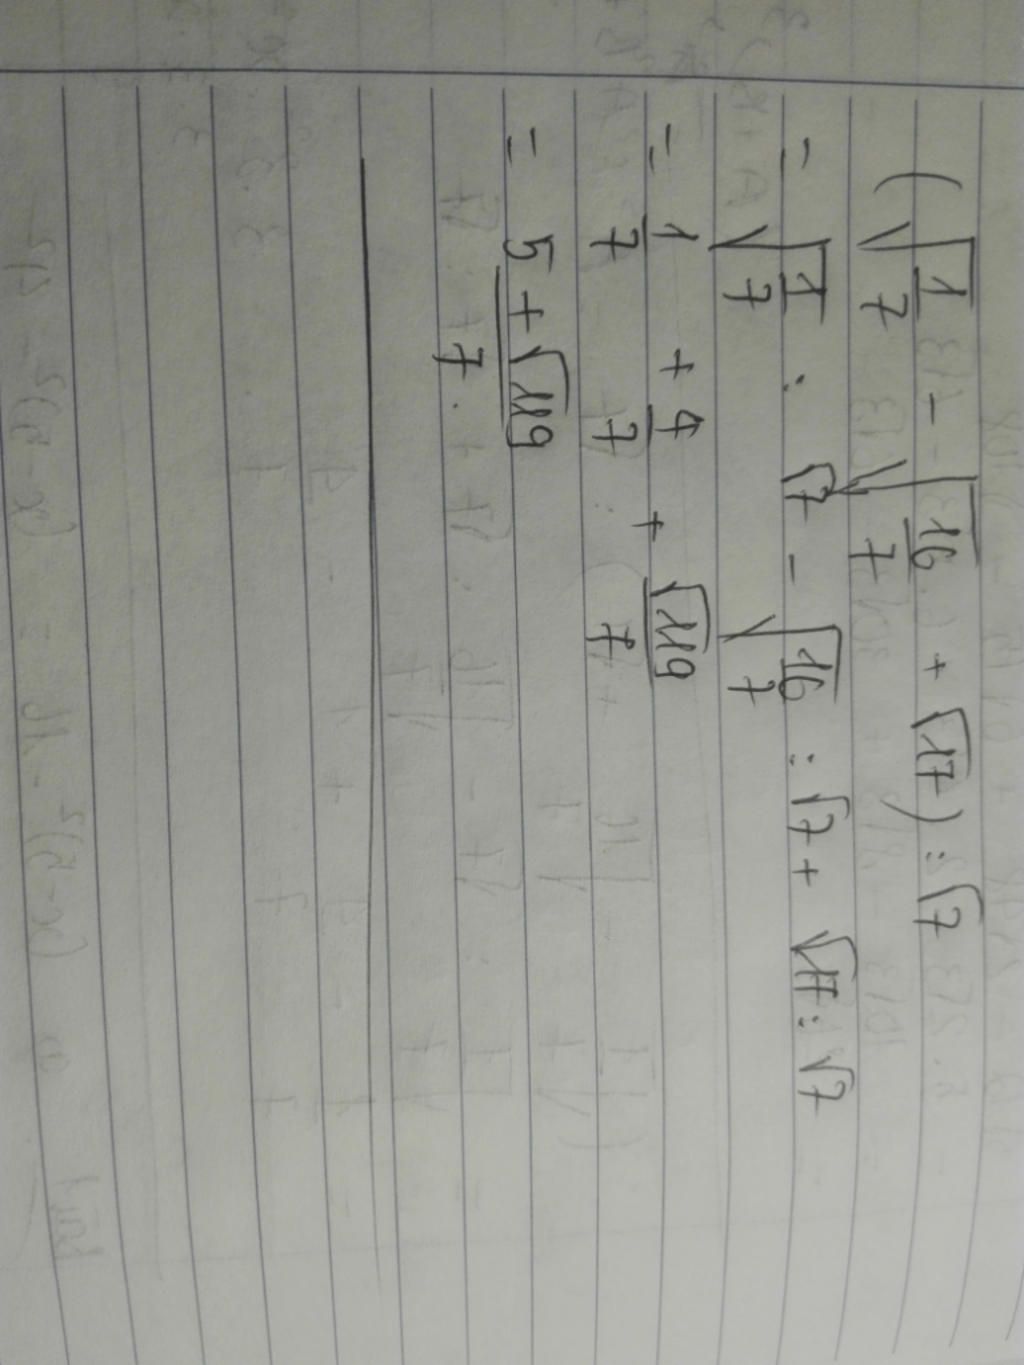 (√(1/7) - √(16/7) + √17) : √7
= √(1/7) : √7 - √(16/7) : √7 + √17 : √7
= 1/7 + 4/7 + √119/7
= (5 + √119)/7